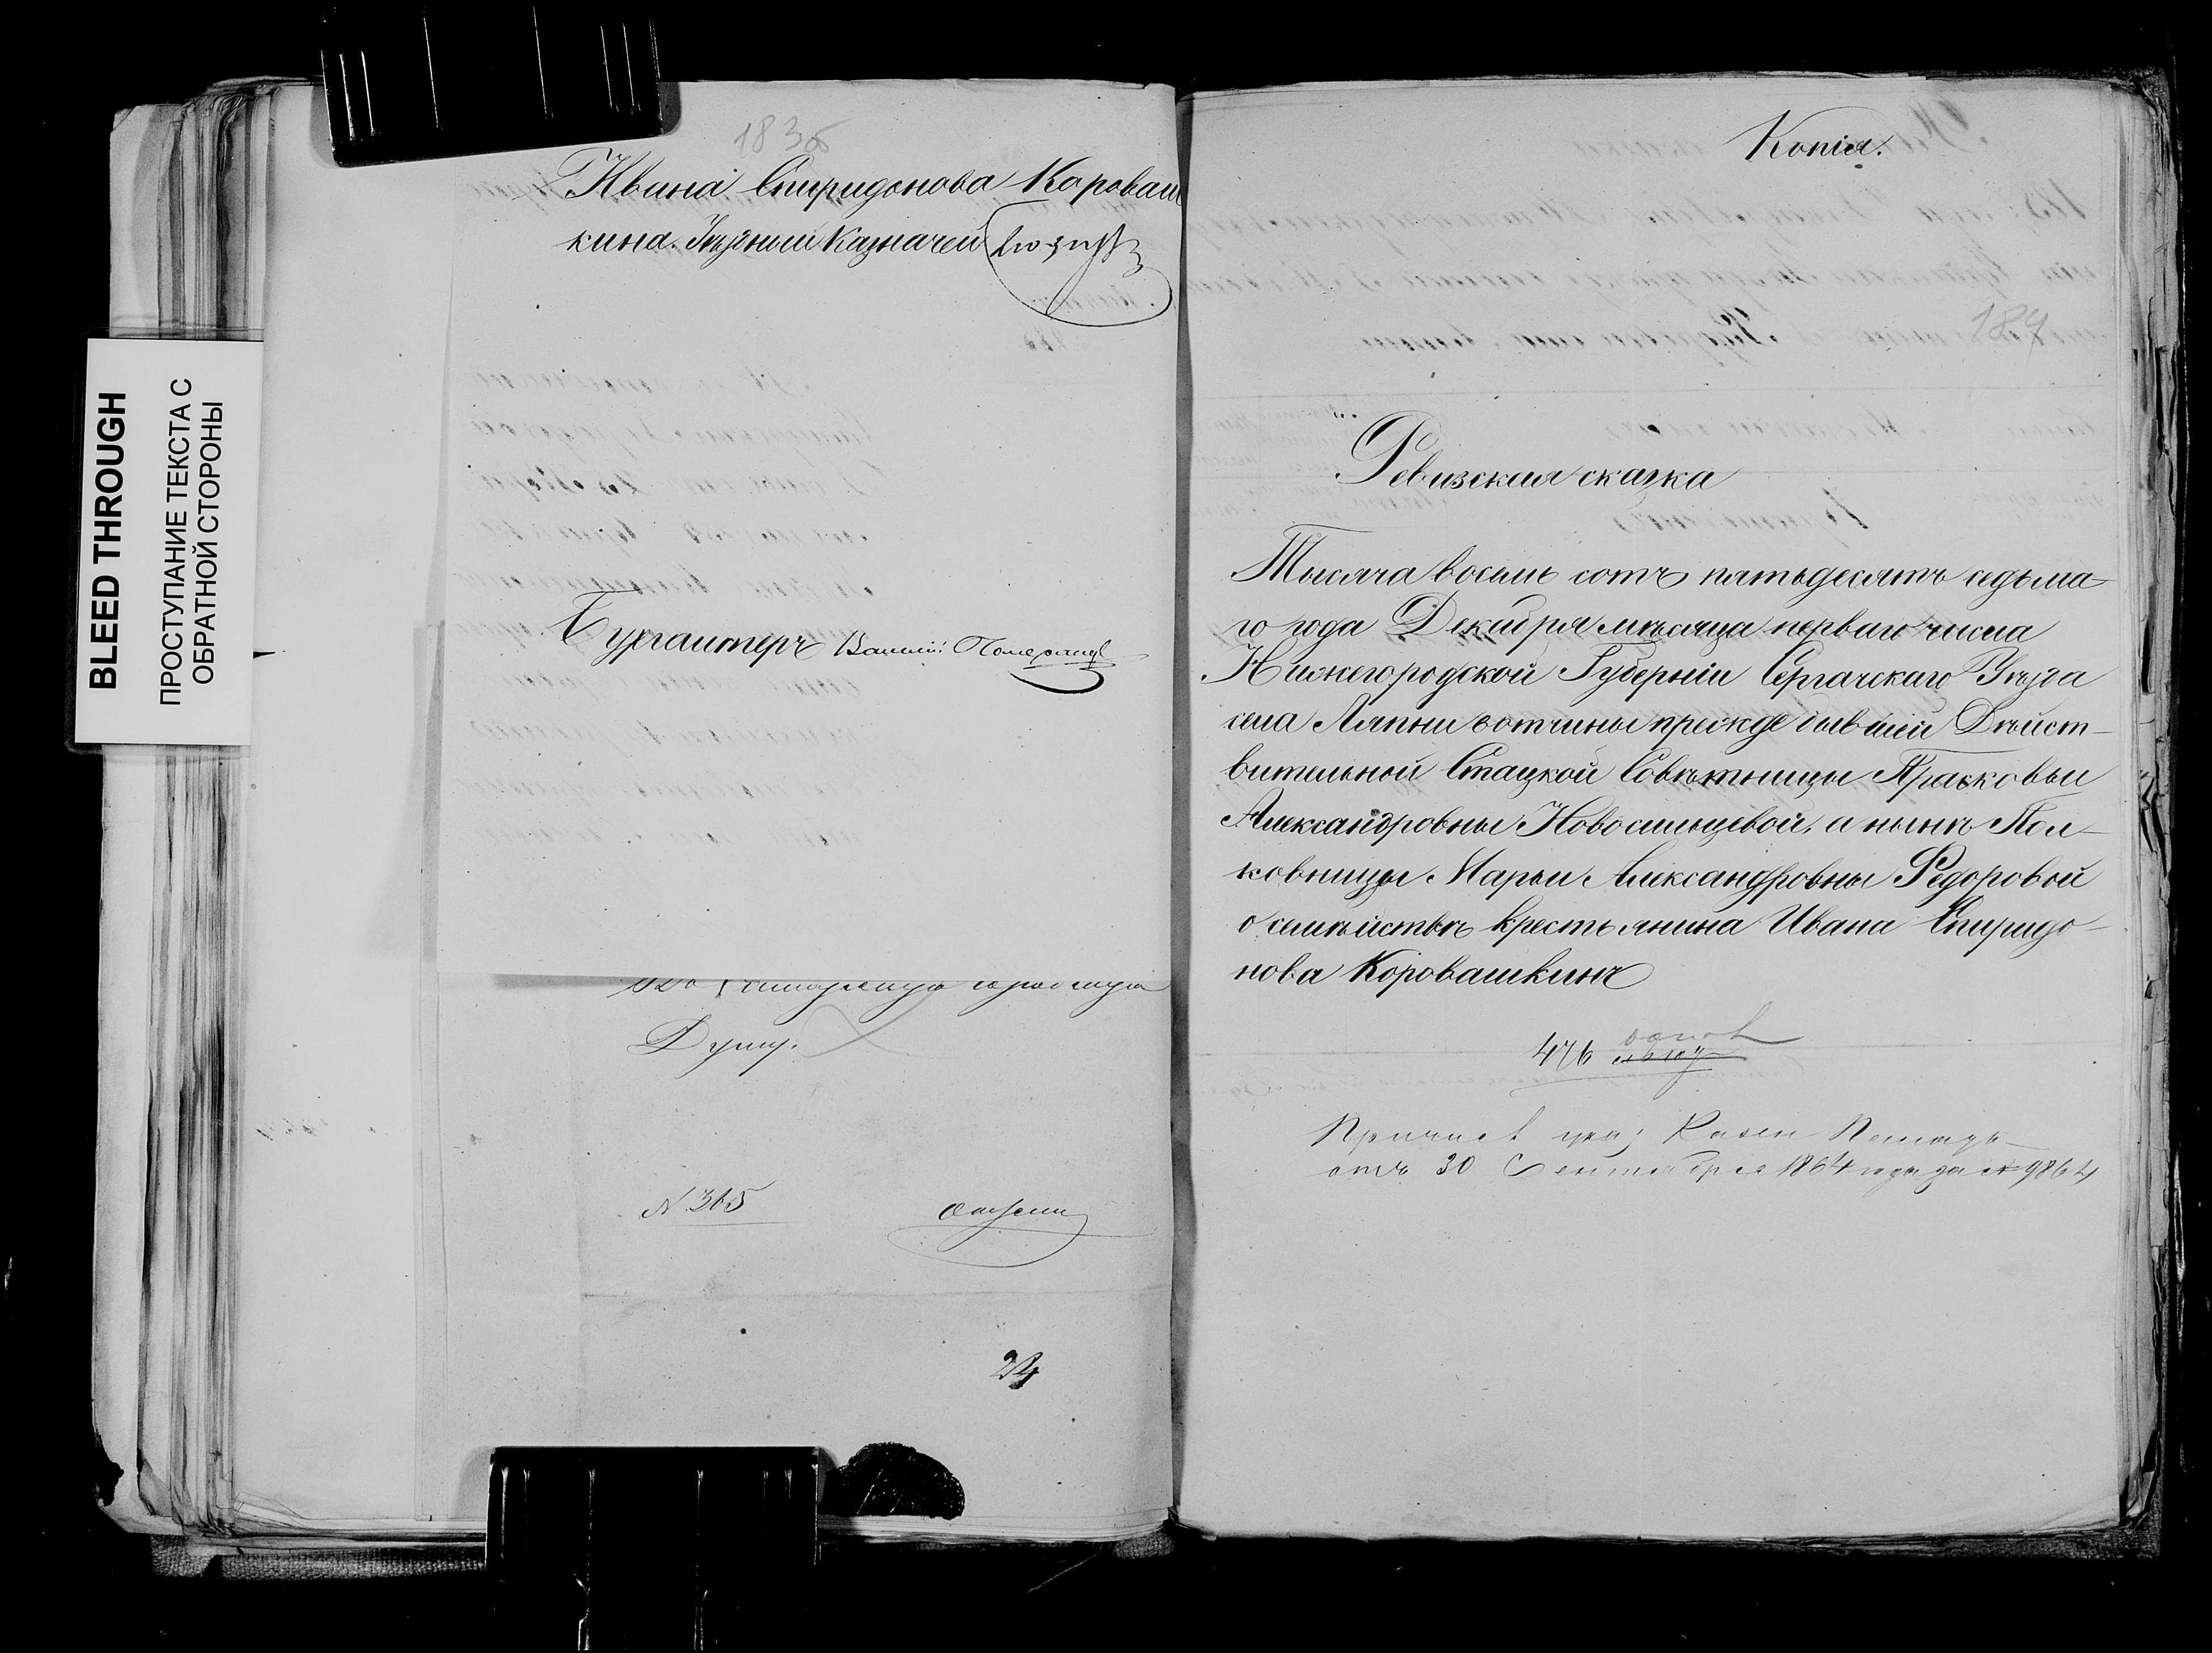 BLEED THROUGH
ПРОСТУПАНИЕ ТЕКСТА С
ОБРАТНОЙ СТОРОНЫ
183б
Ивана Спиридонова Короваш
кина. Уѣздный Казначей
Бухгалтеръ Василій
Душу.
N 365
24
Копія.
184
Ревизская сказка
Тысяча восемь сотъ пятьдесятъ седьма-
го года Декабря мѣсяца перваго числа
Нижегородской Губерніи Сергачскаго Уѣзда
села Ляпни вотчины прежде бывшей Дѣйст-
вительной Стацкой Совѣтницы Прасковьи
Александровны Новосильцевой, а нынѣ Пол-
ковницы Марьи Александровны Федоровой
о семѣйствѣ крестьянина Ивана Спиридо-
нова Коровашкинѣ
476
Причисл указ Казен
отъ 30 Сентября 1864 года за № 9864